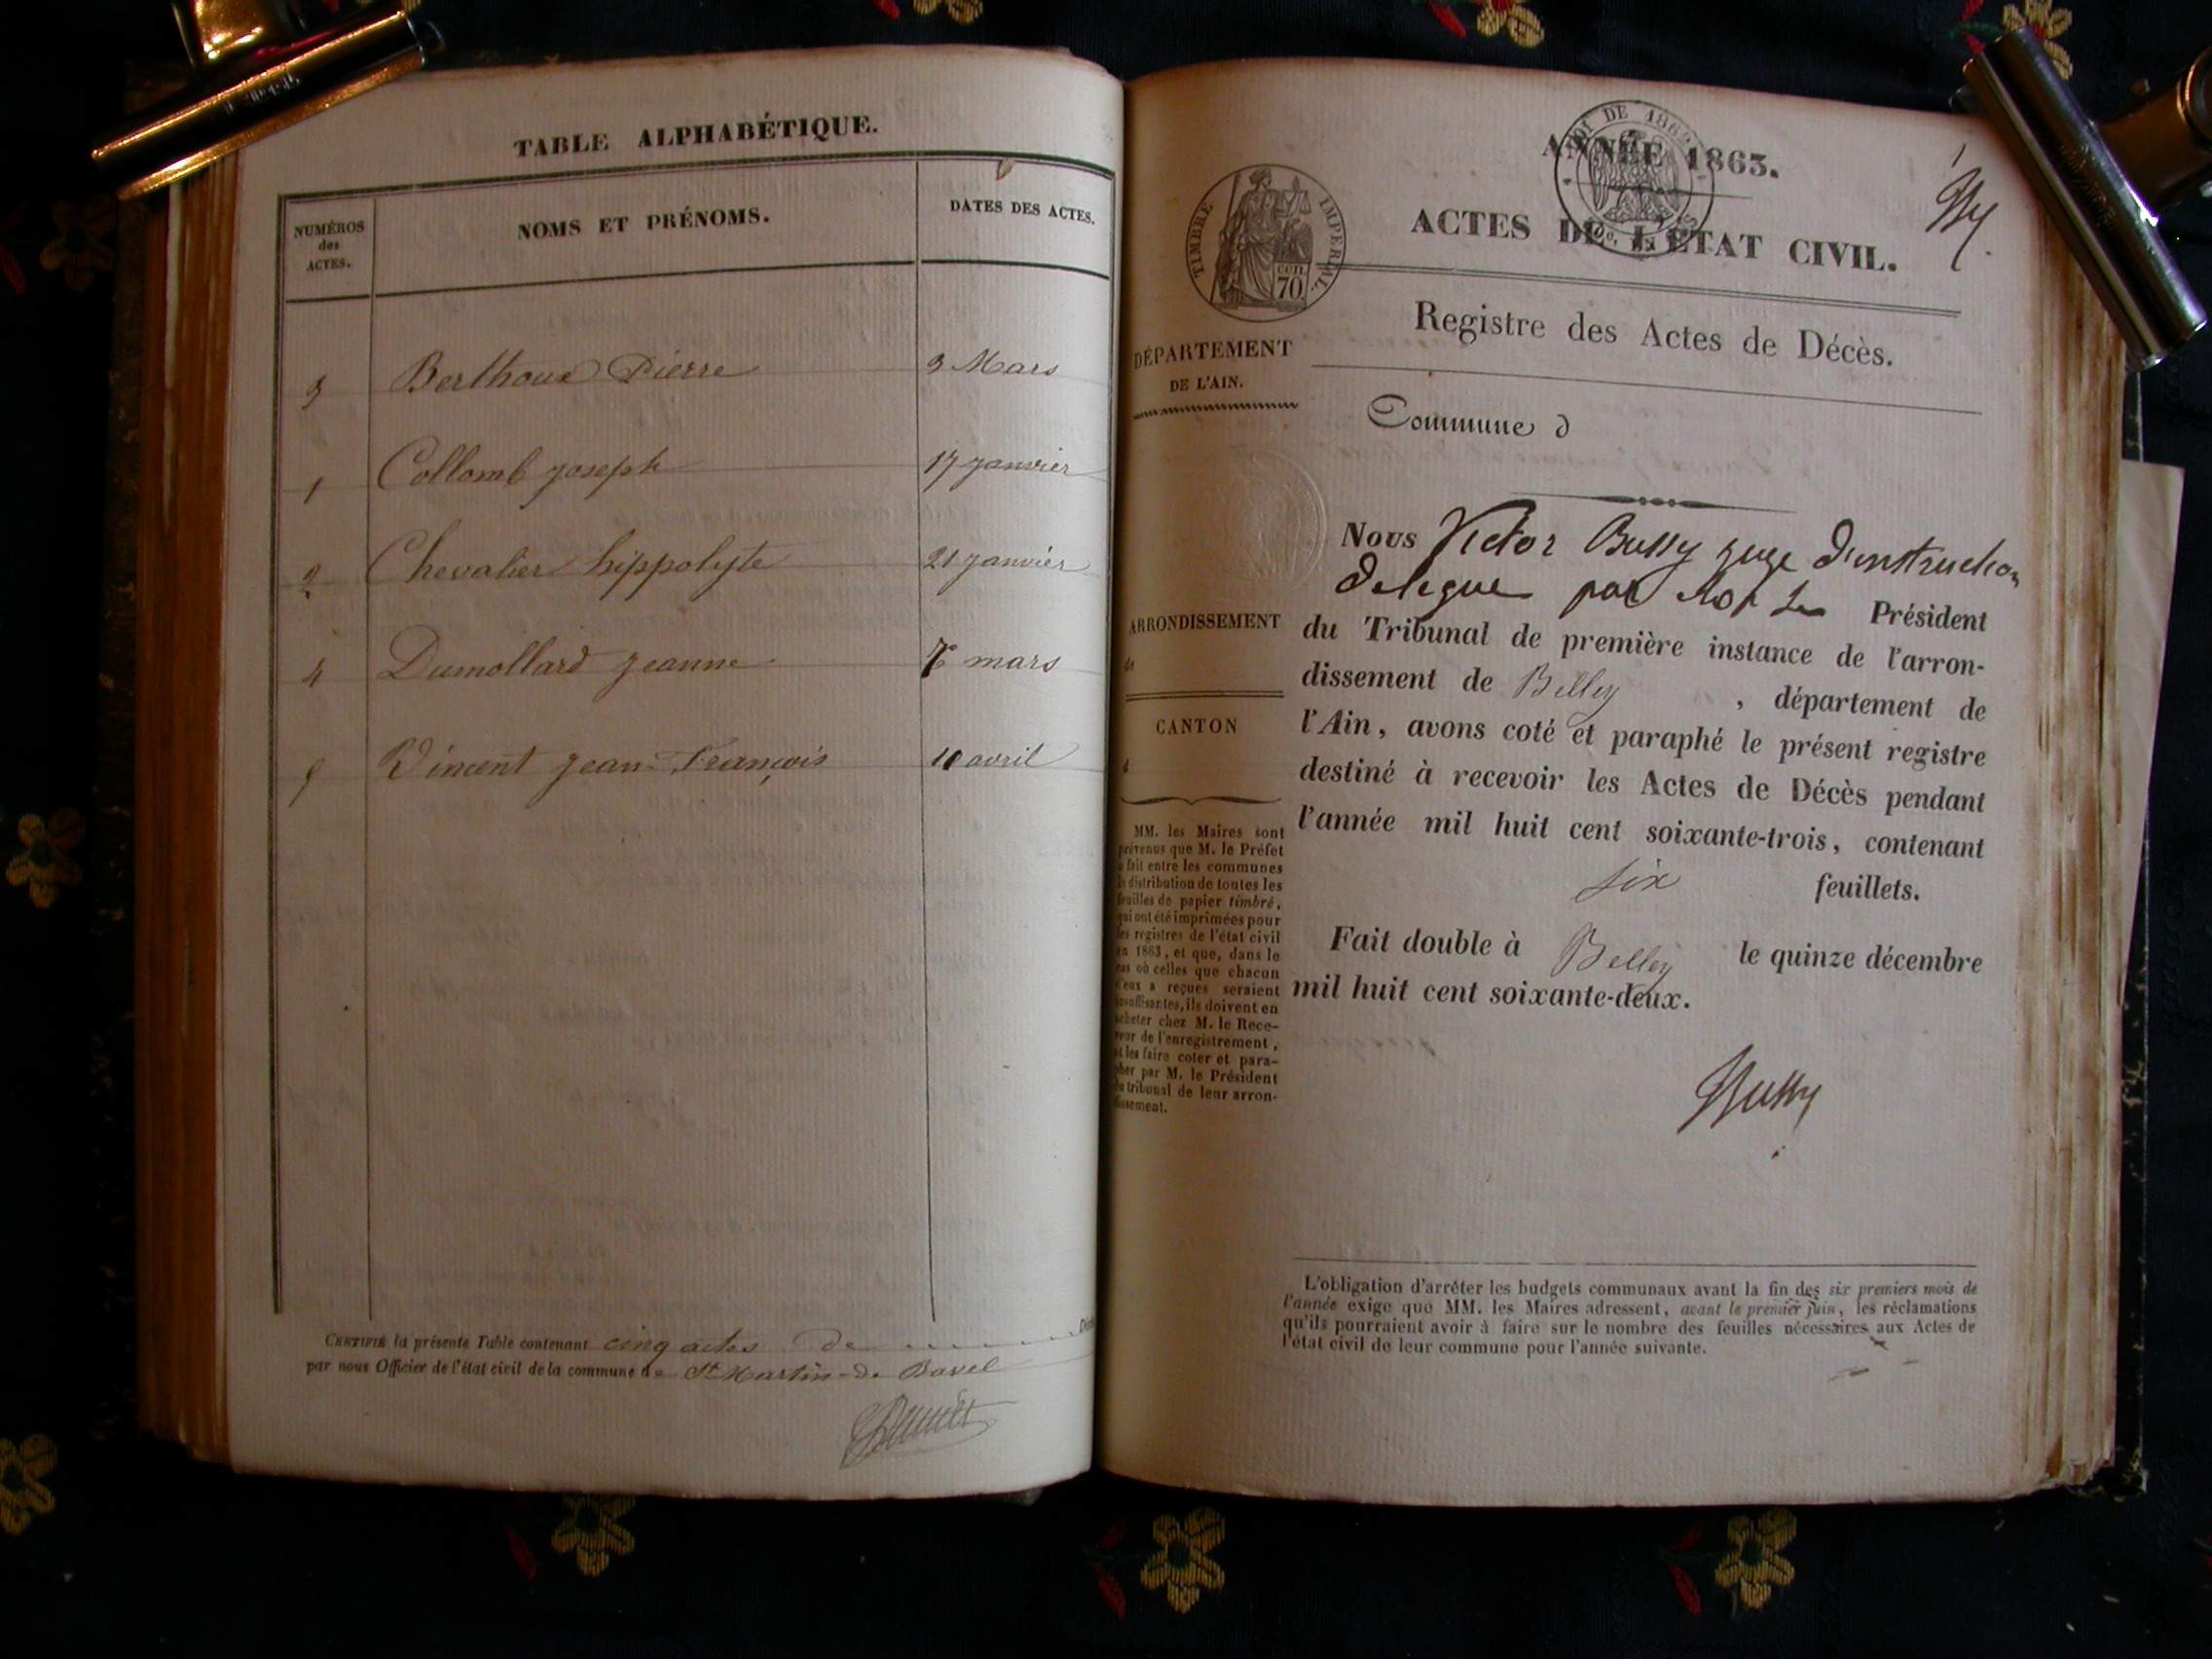 TABLE ALPHABÉTIQUE.
NUMÉROS
des
ACTES.
NOMS ET PRÉNOMS.
DATES DES ACTES.
3 Berthoud Pierre 3 Mars
1 Collomb joseph 17 janvier
2 Chevalier hippolyte 21 janvier
4 Dumollard jeanne 7 mars
5 Vincent jean-François 10 avril
CERTIFIÉ la présente Table contenant cinq actes de
par nous Officier de l'état civil de la commune de St Martin-de Bavel
LOI DE 1862
ANNÉE 1863.
TIMBRE IMPÉRIAL.
cen.
70
ACTES DE L'ÉTAT CIVIL.
Registre des Actes de Décès.
DÉPARTEMENT
DE L'AIN.
Commune d
ARRONDISSEMENT
de
CANTON
d
MM. les Maires sont
prévenus que M. le Préfet
a fait entre les communes
la distribution de toutes les
feuilles de papier timbré,
qui ont été imprimées pour
les registres de l'état civil
en 1863, et que, dans le
cas où celles que chacun
d'eux a reçues seraient
insuffisantes, ils doivent en
acheter chez M. le Rece-
veur de l'enregistrement,
et les faire coter et para-
pher par M. le Président
du tribunal de leur arron-
dissement.
Nous Victor Bussy juge d'instruction
delegue par Mr Le Président
du Tribunal de première instance de l'arron-
dissement de Belley , département de
l'Ain, avons coté et paraphé le présent registre
destiné à recevoir les Actes de Décès pendant
l'année mil huit cent soixante-trois, contenant
six feuillets.
Fait double à Belley le quinze décembre
mil huit cent soixante-deux.
Bussy
L'obligation d'arrêter les budgets communaux avant la fin des six premiers mois de
l'année exige que MM. les Maires adressent, avant le premier juin, les réclamations
qu'ils pourraient avoir à faire sur le nombre des feuilles nécessaires aux Actes de
l'état civil de leur commune pour l'année suivante.